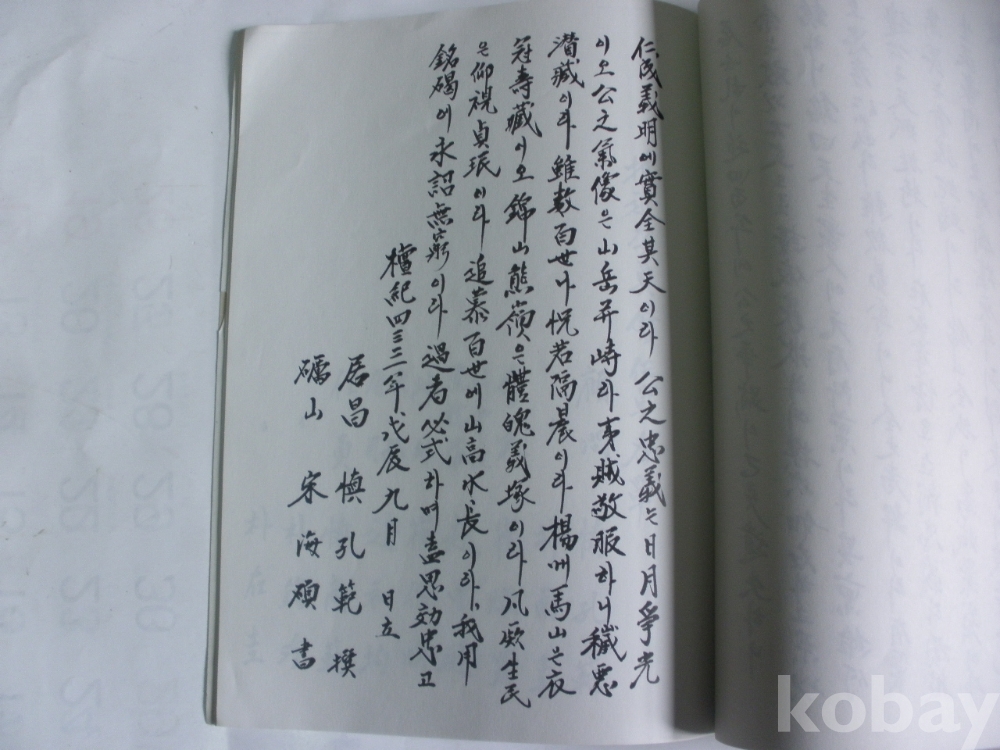 仁民義明에實全其天이라 公之忠義는日月爭光
이오公之氣像은山岳并峙라夷賊敬服하니穢惡
潛臧이라雖數百世나怳若隔晨이라楊洲馬山은衣
冠壽藏이오錦山熊嶺은體魄義塚이라凡厥生民
은仰視貞珉이라追慕百世에山高水長이라我用
銘碣에永詔無窮이라過者必式하며盡思効忠고
檀紀四三二一年戊辰九月 日立
居昌 愼孔範 撰
礪山 宋海碩 書
kobay